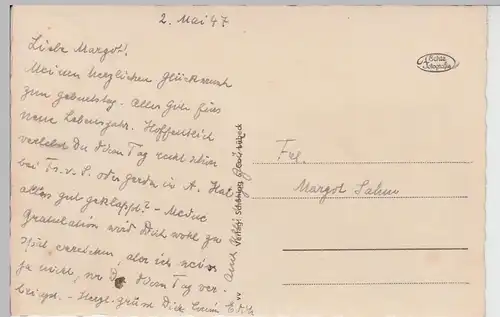 2. Mai 47
Liebe Margot!
Meinen herzlichen Glückwunsch
zum Geburtstag. Alles Gute fürs
neue Lebensjahr. Hoffentlich
verlebst Du Dein Tag recht schön
bei Fr. v. S. oder gerda in A. Hat
alles gut geklappt? – Meine
Gratulation wird Dich wohl zu
spät erreichen, aber ich weiss
ja nicht, wo Du Dein Tag ver-
bringst. – Herzl. grüsst Dich Cousin
Echte
Fotografie
Verlag: Schöning & Co., Lübeck
Frl.
Margot Lahm